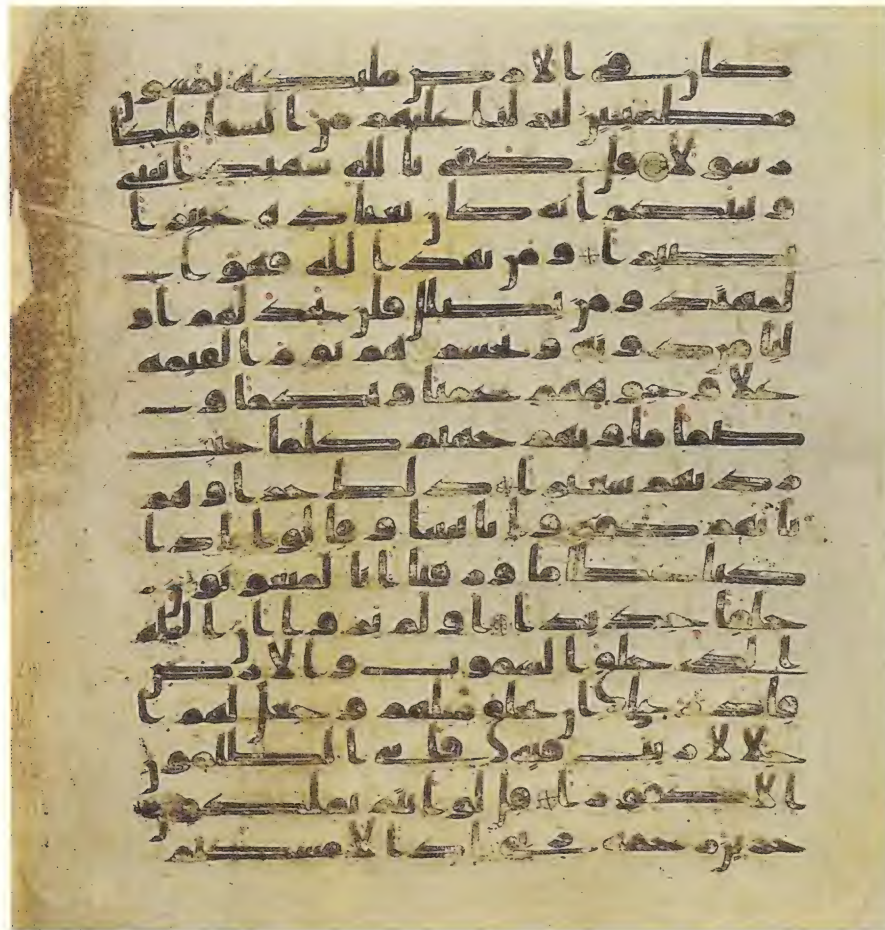 كان في الارض ملىكه ىمشون
مطمىىىن لىرلىا علىهم من السما ملكا
رسولا قل كفى بالله شهىدا بىنى
وبىنكم انه كان بعباده خبىرا
بصىرا ومن ىهد الله فهو ا
لمهتد ومن ىضلل فلن تجد لهم او
لىا من دونه ونحشرهم ىوم القىمه
على وجوههم عمىا وبكما و
صما ماوىهم جهنم كلما خبت
زدنهم سعىرا ذلك جزاوهم
بانهم كفروا باىتنا وقالوا اذا
كنا عظاما ورفتا انا لمبعوثون
خلقا جدىدا اولم ىروا ان الله
الذى خلق السموت والارض
قادر على ان ىخلق مثلهم وجعل لهم ا
جلا لا رىب فىه فابى الظلمون
الا كفورا قل لو انتم تملكون
خزىن رحمه ربى اذا لامسكتم